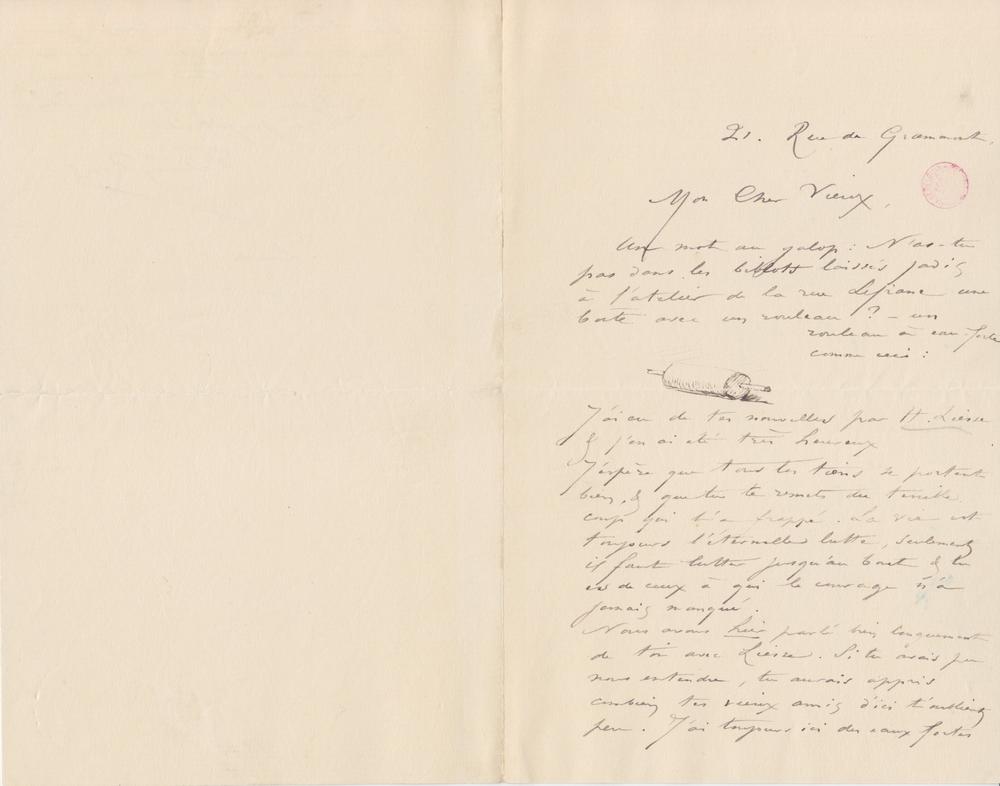 21. Rue de Gramont.
Mon Cher Vieux,
Un mot au galop : N'as-tu
pas dans les bibelots laissés jadis
à l'atelier de la rue Lefranc une
boîte avec un rouleau ? - un
rouleau à eau-forte
comme ceci :
J'ai eu de tes nouvelles par H. Liesse
& j'en ai été très heureux
J'espère que tous les tiens se portent
bien, & que tu te remets du terrible
coup qui t'a frappé. La vie est
toujours l'éternelle lutte, seulement
il faut lutter jusqu'au bout & tu
es de ceux à qui le courage n'a
jamais manqué.
Nous avons hier parlé bien longuement
de toi avec Liesse. Si tu avais pu
nous entendre, tu aurais appris
combien tes vieux amis d'ici t'oublient
peu. J'ai toujours ici des eaux fortes